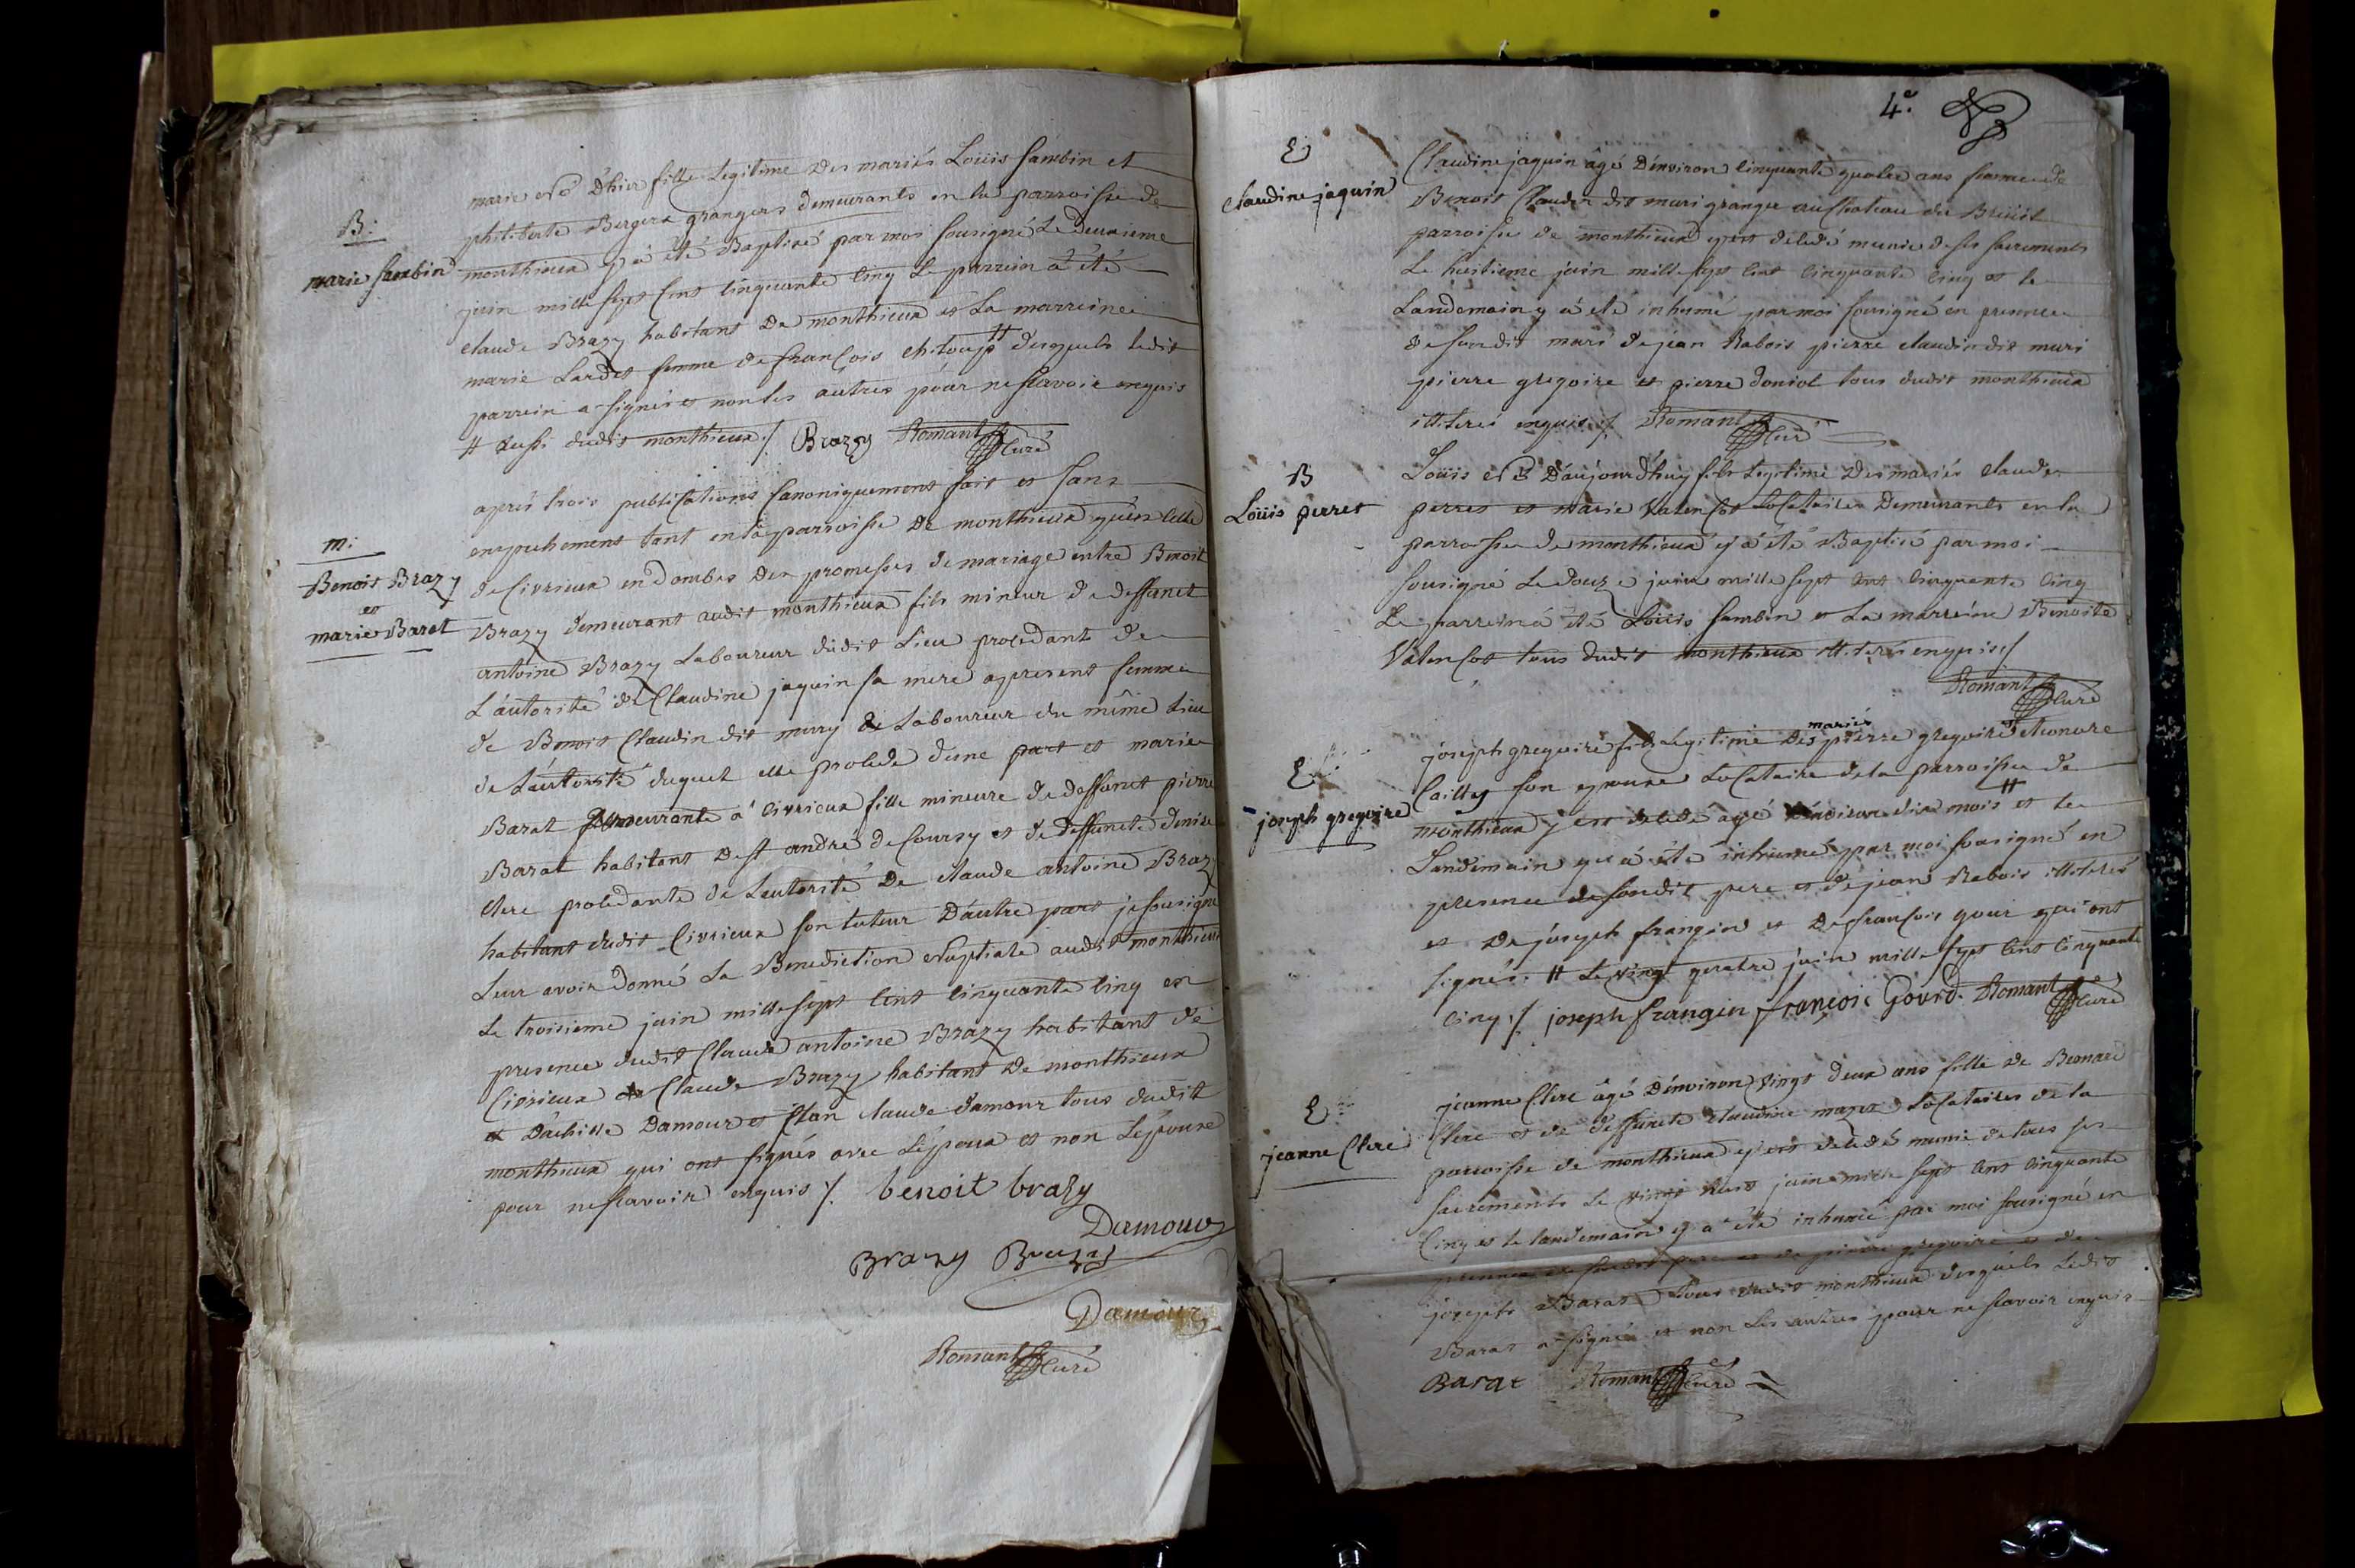 B:
marie sambin
marie née d'hier fille legitime des mariés Loüis sambin et
philiberte Bergera grangers demeurants en la parroisse de
monthieux y a été Baptisé par moi sousigné Le deuxieme
juin mille sept cent cinquante cinq Le parrein a été
claude Brazy habitant de monthieux et La marreine
marie Lardet femme de françois chiloup # desquels ledit
parrein a signé et non les autres pour ne sçavoir enquis
# aussi dudit monthieux ⁒ Brazy Romant Curé
m:
Benoit Brazy
et
marie Barat
après trois publications canoniquement fait et sans
empechement tant en la parroisse de monthieux qu'en celle
de Civrieux en dombes des promesses de mariage entre Benoit
Brazy demeurant audit monthieux fils mineur de deffunct
antoine Brazy Laboureur dudit Lieu procedant de
L'autorité de Claudine jaquin sa mere apresent femme
de Benoit Claudin dit mury Laboureur du même Lieu
de L'autorité duquel elle procede d'une part et marie
Barat demeurante à Civrieux fille mineure de deffunct pierre
Barat habitant de st andré de Courcy et de deffuncte denise
Clerc procedante de Lautorité de claude antoine Brazy
habitant dudit Civrieux son tuteur D'autre part je sousigné
Leur avoir donné La Benediction Nuptiale audit monthieux
Le troisieme juin mille sept cent cinquante cinq en
presence dudit Claude antoine Brazy habitant de
Civrieux Claude Brazy habitant de monthieux
et D'achille Damour et jean claude damour tous dudit
monthieux qui ont signés avec L'époux et non L'épouse
pour ne sçavoir enquis ⁒ benoit brazy
Damour
Brazy Brazy
Damour
Romant Curé
4e.
E
claudine jaquin
Claudine jaquin âgé D'environ cinquante quatre ans femme de
Benoit Claudin dit muri granger au chateau du Breüil
parroisse de monthieux y est décedé munie de ses sacrements
Le huitieme juin mille sept cent cinquante cinq et le
Landemain y a été inhumé par moi sousigné en presence
de son dit mari de jean Rabois pierre claudin dit muri
pierre gregoire et pierre doniol tous dudit monthieux
illiterés enquis ⁒ Romant Curé
B
Loüis perret
Loüis Né D'aujourd'huy fils Legitime des mariés claude
perret et marie Valensot Locataires Demeurants en la
parroisse de monthieux y a été Baptisé par moi
sousigné Le douze juin mille sept cent cinquante cinq
Le parrein a été Loüis sambin et La marreine Benoite
Valensot tous dudit monthieux illiterés enquis ⁒
Romant Curé
E
joseph gregoire
joseph gregoire fils Legitime des mariés pierre gregoire et
Cailley son epouse Locataire de la parroisse de
monthieux y est decedé agé d'environ dix mois # et le
Landemain y a été inhumé par moi sousigné en
presence de son dit pere et de jean Rabois illiterés
et de joseph frangin et De françois gour qui ont
signés. # Le vingt quatre juin mille sept cent cinquante
cinq ⁒ joseph frangin françois Gourd. Romant Curé
E
jeanne Clerc
jeanne Clerc âgé D'environ vingt deux ans fille de Bernard
Clerc et de deffuncte claudine mazet Locataires de la
parroisse de monthieux y est decedé munie de tous ses
sacrements Le vingt huit juin mille sept cent cinquante
Cinq et le landemain y a été inhumé par moi sousigné en
presence de son dit pere et de pierre gregoire et de
joseph Barat tous dudit monthieux desquels Ledit
Barat a signé et non Les autres pour ne sçavoir enquis
Barat Romant Curé